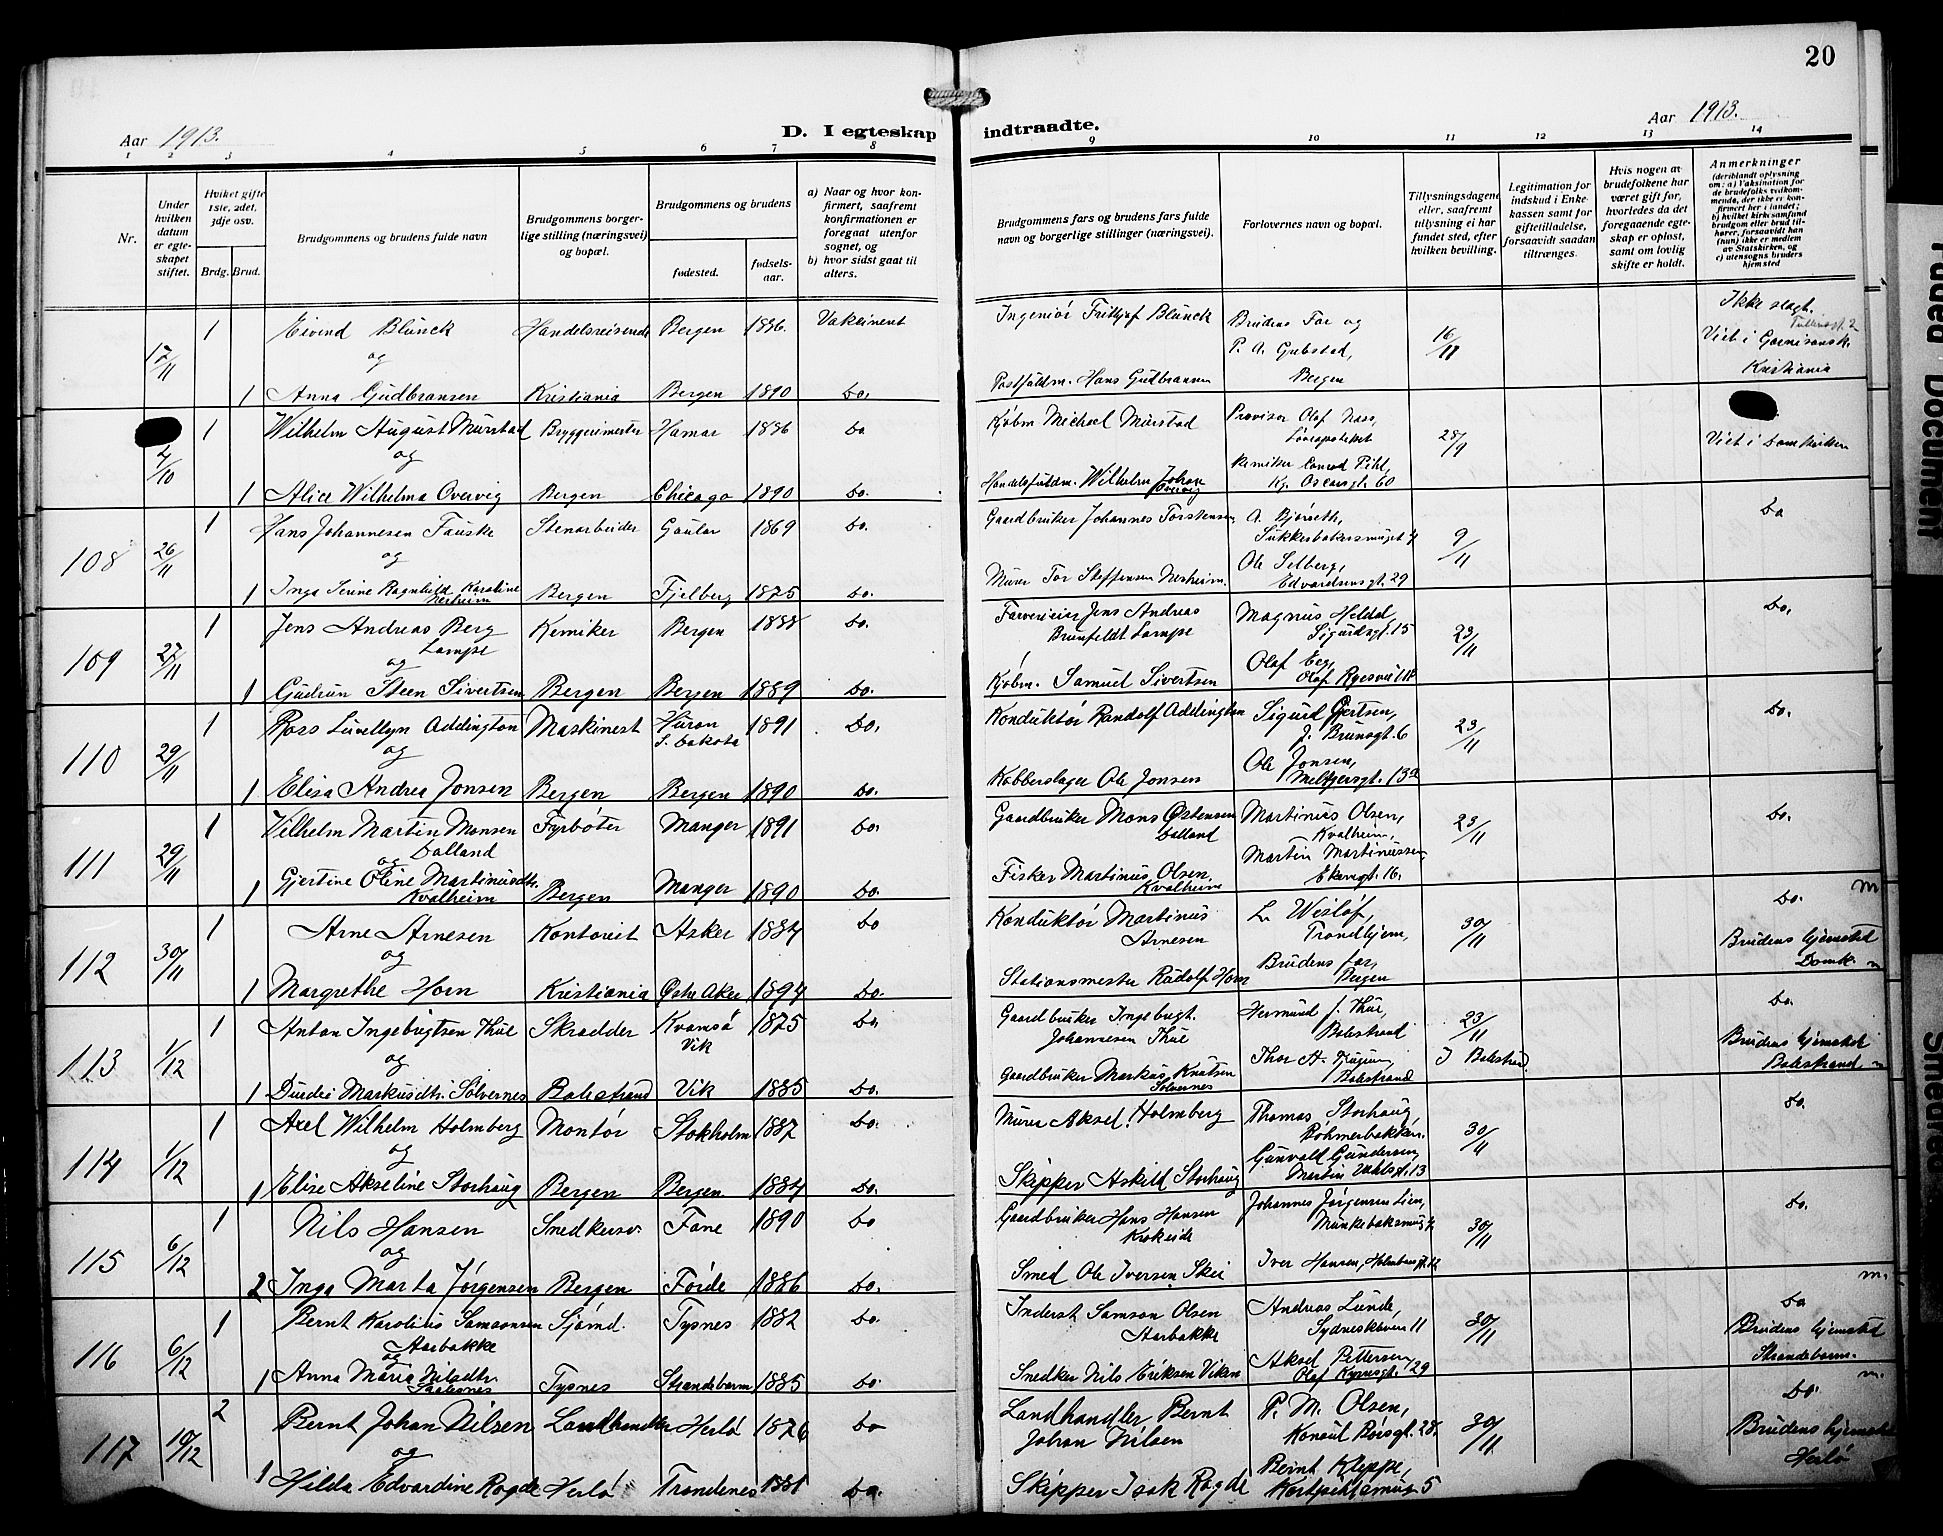 20
Aar 1913.
D. I egteskap indtraadte.
Aar 1913.
1 2 3 4 5 6 7 8 9 10 11 12 13 14
Nr.
Under hvilken datum er egteskapet stiftet.
Hvilket gifte 1ste, 2det, 3dje osv.
Brdg. Brud.
Brudgommens og brudens fulde navn
Brudgommens borgerlige stilling (næringsvei) og bopæl.
Brudgommens og brudens
fødested.
fødselsaar.
a) Naar og hvor konfirmert, saafremt konfirmationen er foregaat utenfor sognet, og
b) hvor sidst gaat til alters.
Brudgommens fars og brudens fars fulde navn og borgerlige stillinger (næringsvei).
Forlovernes navn og bopæl.
Tillysningsdagene eller, saafremt tillysning ei har fundet sted, efter hvilken bevilling.
Legitimation for indskud i Enkekassen samt for giftetilladelse, forsaavidt saadan tiltrænges.
Hvis nogen av brudefolkene har været gift før, hvorledes da det foregaaende egteskap er opløst, samt om lovlig skifte er holdt.
Anmerkninger
(deriblandt oplysning om: a) Vaksination for de brudefolks vedkommende, der ikke er konfirmert her i landet; b) hvilket kirkesamfund brudgom eller brud tilhører, forsaavidt han (hun) ikke er medlem av Statskirken, og c) utensogns bruders hjemsted
17/11 1 Eivind Blunck Handelsreisende Bergen 1886. Vaksinert Ingeniør Fritljof Blunck Brudens Far og 16/11 Ikke slegt.
og P. A. Gubstad, Viet i Garnisonsk.
1 Anna Gudbransen Kristiania Bergen 1890 Do. Postfuldm. Hans Gudbransen Bergen Kristiania
4/10 1 Wilhelm August Mürstad Bryggerimester Hamar 1886 Do Kjøbm Michael Mürstad Provisor Olaf Nass, 28/9 Viet i Domkirken
og Løveapoteket
1 Alice Wilhelma Overvig Bergen Chicago 1890 Do. Handelsfuldm. Wilhelm Johan Overvig Kemiker Conrad Pihl, Kr. Oscarsgt. 60
108 26/11 1 Hans Johannesen Fauske Stenarbeider Gaular 1869 Do. Gaardbruker Johannes Torstensen A. Bjørseth, 9/11 Do
og Sukkerbakersmuget 4
1 Inga Serine Ragnhild Karoline Nesheim Bergen Fjelberg 1875 Do. Murer Tor Steffensen Nesheim. Ole Selberg, Edvardsensgt. 29
109 27/11 1 Jens Andreas Berg Lampe Kemiker Bergen 1888 Do. Farverieier Jens Andreas Brunfeldt Lampe Magnus Heldal, Sigurdsgt. 15 23/11 Do.
og
1 Gudrun Steen Sivertsen Bergen Bergen 1889 Do. Kjøbm. Samuel Sivertsen Olaf Eeg, Olaf Ryesvei 18
110 29/11 1 Ross Luvellyn Addington Maskinist Huron S. Dakota 1891 Do. Konduktør Randolf Addington Sigurd Gjertsen, J. Brunsgt. 6 23/11 Do.
og
1 Elisa Andrea Jonsen Bergen Bergen 1890 Do. Kobberslager Ole Jonsen Ole Jonsen, Meltzersgt. 13a
111 29/11 1 Vilhelm Martin Monsen Dalland Fyrbøter Manger 1891 Do. Gaardbruker Mons Østensen Dalland Martinus Olsen, Kvalheim, 23/11 Do.
og
1 Gjertine Oline Martinusdtr. Kvalheim Bergen Manger 1890 Do. Fisker Martinus Olsen Kvalheim Martin Martinussen, Ekrengt. 16. m
112 30/11 1 Arne Arnesen Kontorist Asker 1884 Do Konduktør Martinus Arnesen L. Wisløf, Trondhjem, 30/11 Do.
og Brudens hjemsted
1 Margrethe Horn Kristiania Østre Aker 1894 Do. Stationsmester Rudolf Horn Brudens far, Bergen Domk. m
113 1/12 1 Anton Ingebrigtsen Thue Skrædder Kvamsø Vik 1875 Do. Gaardbruker Ingebrigt. Johannesen Thue Hermund J. Thue, Balestrand 23/11 Do.
og I Balestrand Brudens hjemsted
1 Durdei Markusdtr. Sølvernes Balestrand Vik 1885 Do. Gaardbruker Markus Knutsen Sølvernes Thor A. Balestrand Balestrand m
114 1/12 1 Axel Wilhelm Holmberg Montør Stokholm 1887 Do. Murer Aksel Holmberg Thomas Storhaug, Røhmerbakken. 30/11 Do.
og
1 Elise Akseline Storhaug Bergen Bergen 1884 Do. Skipper Askild Storhaug Gunvald Gundersen, Martin Vahlsgt. 13
115 6/12 1 Nils Hansen Snedkersv. Fane 1890 Do Gaardbruker Hans Hansen Krokeide Johannes Jørgensen Lien, Munkebaksmug 4 30/11 Do.
og
2 Inga Marta Jørgensen Bergen Førde 1886 Do. Smed Ole Iversen Skei Iver Hansen, Holmbergst. 12 m.
116 6/12 1 Bernt Karolius Samsonsen Aarbakke Sjømd. Tysnes 1882 Do. Inderst Samson Olsen Aarbakke Andreas Lunde, Sydneskleven 11 30/11 Do
og Brudens hjemsted
1 Anna Maria Nilsdtr. Tysnes Strandebarm 1885 Do. Snedker Nils Eriksen Viken Aksel Pettersen, Olaf Kyrresgt. 29 Strandebarm. m.
117 10/12 2 Bernt Johan Nilsen Landhandler Herlø 1876 Do Landhandler Bernt Johan Nilsen P. M. Olsen, Konsul Børsgt. 28. 30/11 Do.
og Brudens hjemsted
1 Hilda Edvardine Rogde Herlø Trondenes 1881 Do. Skipper Isak Rogde Bernt Kleppe, 5 Herlø
Faded Document